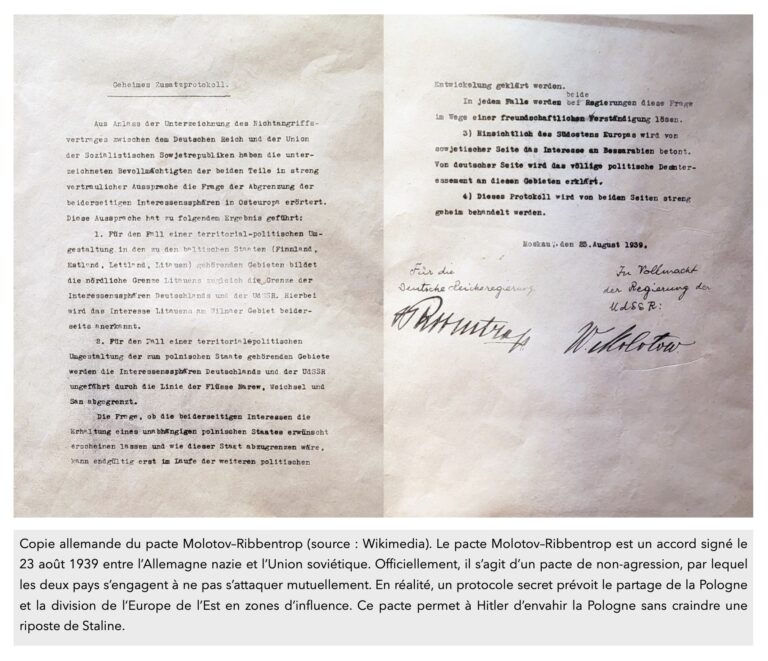 Geheimes Zusatzprotokoll.
Aus Anlass der Unterzeichnung des Nichtangriffs-
vertrages zwischen dem Deutschen Reich und der Union
der Sozialistischen Sowjetrepubliken haben die unter-
zeichneten Bevollmächtigten der beiden Teile in streng
vertraulicher Aussprache die Frage der Abgrenzung der
beiderseitigen Interessensphären in Osteuropa erörtert.
Diese Aussprache hat zu folgendem Ergebnis geführt:
1. Für den Fall einer territorial-politischen Um-
gestaltung in den zu den baltischen Staaten (Finnland,
Estland, Lettland, Litauen) gehörenden Gebieten bildet
die nördliche Grenze Litauens zugleich die Grenze der
Interessensphären Deutschlands und der UdSSR. Hierbei
wird das Interesse Litauens am Wilnaer Gebiet beider-
seits anerkannt.
2. Für den Fall einer territorial-politischen
Umgestaltung der zum polnischen Staate gehörenden Gebiete
werden die Interessensphären Deutschlands und der UdSSR
ungefähr durch die Linie der Flüsse Narew, Weichsel und
San abgegrenzt.
Die Frage, ob die beiderseitigen Interessen die
Erhaltung eines unabhängigen polnischen Staates erwünscht
erscheinen lassen und wie dieser Staat abzugrenzen wäre,
kann endgültig erst im Laufe der weiteren politischen
Entwickelung geklärt werden.
beide
In jedem Falle werden bei Regierungen diese Frage
im Wege einer freundschaftlichen Verständigung lösen.
3) Hinsichtlich des Südostens Europas wird von
sowjetischer Seite das Interesse an Bessarabien betont.
Von deutscher Seite wird das völlige politische Desinter-
essement an diesen Gebieten erklärt.
4) Dieses Protokoll wird von beiden Seiten streng
geheim behandelt werden.
Moskau, den 23. August 1939.
Für die
Deutsche Reichsregierung
In Vollmacht
der Regierung der
UdSSR:
W. Molotow
Copie allemande du pacte Molotov–Ribbentrop (source : Wikimedia). Le pacte Molotov–Ribbentrop est un accord signé le
23 août 1939 entre l’Allemagne nazie et l’Union soviétique. Officiellement, il s’agit d’un pacte de non-agression, par lequel
les deux pays s’engagent à ne pas s’attaquer mutuellement. En réalité, un protocole secret prévoit le partage de la Pologne
et la division de l’Europe de l’Est en zones d’influence. Ce pacte permet à Hitler d’envahir la Pologne sans craindre une
riposte de Staline.